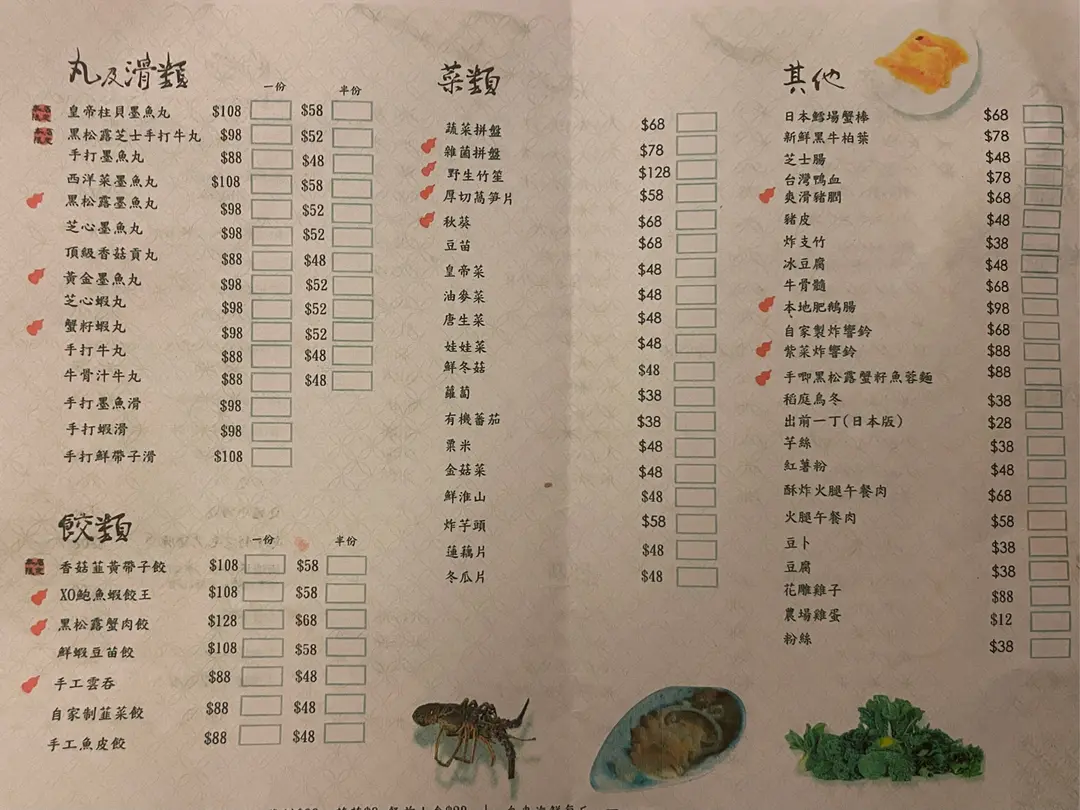 丸及滑類
一份 半份
皇帝柱貝墨魚丸 $108 $58
黑松露芝士手打牛丸 $98 $52
手打墨魚丸 $88 $48
西洋菜墨魚丸 $108 $58
黑松露墨魚丸 $98 $52
芝心墨魚丸 $98 $52
頂級香菇貢丸 $88 $48
黃金墨魚丸 $98 $52
芝心蝦丸 $98 $52
蟹籽蝦丸 $98 $52
手打牛丸 $88 $48
牛骨汁牛丸 $88 $48
手打墨魚滑 $98
手打蝦滑 $98
手打鮮帶子滑 $108
餃類
一份 半份
香菇韮黃帶子餃 $108 $58
XO鮑魚蝦餃王 $108 $58
黑松露蟹肉餃 $128 $68
鮮蝦豆苗餃 $108 $58
手工雲吞 $88 $48
自家制韮菜餃 $88 $48
手工魚皮餃 $88 $48
菜類
蔬菜拼盤 $68
雜菌拼盤 $78
野生竹笙 $128
厚切萵笋片 $58
秋葵 $68
豆苗 $68
皇帝菜 $48
油麥菜 $48
唐生菜 $48
娃娃菜 $48
鮮冬菇 $48
蘿蔔 $38
有機蕃茄 $38
粟米 $48
金菇菜 $48
鮮淮山 $48
炸芋頭 $58
蓮藕片 $48
冬瓜片 $48
其他
日本鱈場蟹棒 $68
新鮮黑牛柏葉 $78
芝士腸 $48
台灣鴨血 $78
爽滑豬膶 $68
豬皮 $48
炸支竹 $38
冰豆腐 $48
牛骨髓 $68
本地肥鵝腸 $98
自家製炸響鈴 $68
紫菜炸響鈴 $88
手唧黑松露蟹籽魚蓉麵 $88
稻庭烏冬 $38
出前一丁(日本版) $28
芋絲 $38
紅薯粉 $48
酥炸火腿午餐肉 $68
火腿午餐肉 $58
豆卜 $38
豆腐 $38
花雕雞子 $88
農場雞蛋 $12
粉絲 $38